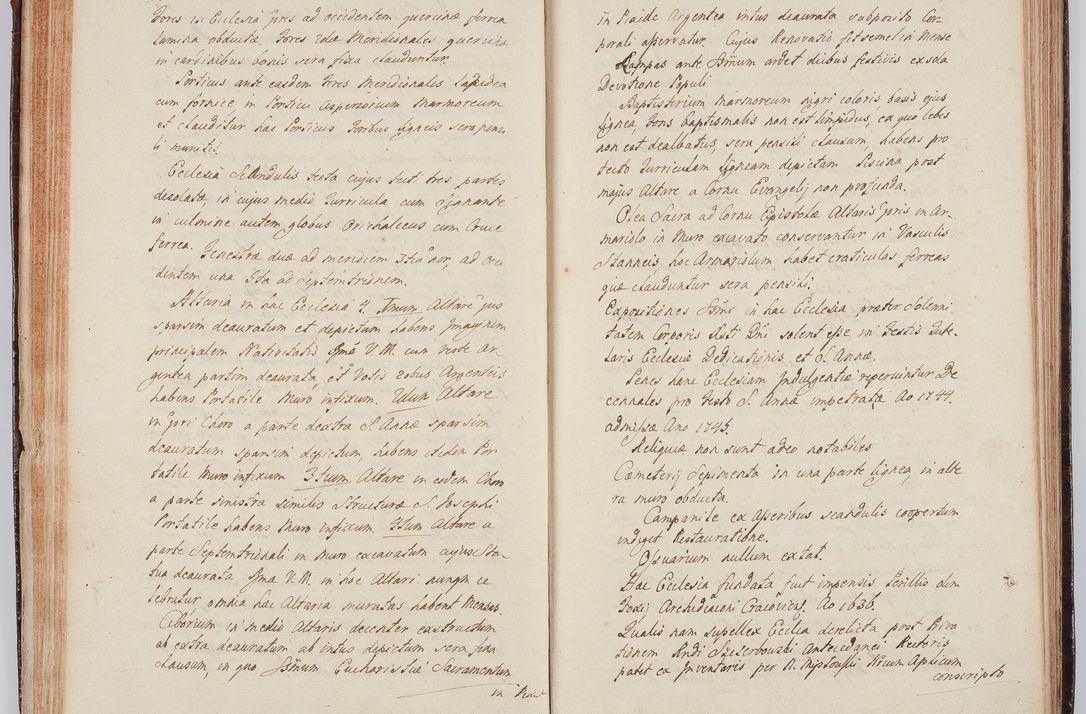 Fores in Ecclesia pres ad occidentem quercinæ ferrea
lamina obductæ, Fores 2dæ Meridionales quercinæ
in cardinibus bonis sera fixa clauduntur.
Porticus ante easdem Fores Meridionales lapidea
cum fornice in Porticu Aspersorium Marmoreum
et clauditur hæc Porticus Foribus ligneis sera pensi
li munitis.
Ecclesia Scandulis tecta cujus tecti tres partes
desolatæ, in cujus medio Turricula cum Signante
in culmine autem globus Orichalceus cum Cruce
ferrea. Fenestræ duæ ad meridiem 3tia nor, ad Occi
dentem una 5ta ad septemtrionem.
Altaria in hac Ecclesia 4. Imum Altare jus
sparsim deauratum et depictum habens Imaginem
principalem Nativitatis Bmæ V. M. cum veste Ar-
gentea partim deaurata, et Votis 20bus Argenteis
habens Portatile Muro infixum. 2dum Altare
in pri Choro a parte dextra S. Annæ sparsim
deauratum sparsim depictum, habens itidem Por
tatile Muro infixum 3tium Altare in eodem Choro
a parte sinistra similis Structuræ S. Josephi
Portatile habens Muro infixum 4tum Altare a
parte Septemtrionali in Muro excavatum cujus Sta-
tua deaurata Bmæ V. M. in hoc Altari nunqm ce
lebratur omnia hæc Altaria muratas habent Mensas.
Ciborium in medio Altaris decenter exstructum
ab extra deauratum ab intus depictum sera fixa
clausum, in quo Ssmum Eucharistiæ Sacramentum
in
in Pixide Argentea intus deaurata subposito Cor
porali asservatur. Cujus Renovatio fit semel in Mense
Lampas ante Ssmum ardet diebus festivis ex sola
Devotione Populi
Baptisterium Marmoreum nigri coloris, basis ejus
lignea, Fons baptismalis non est limpidus, ex quo lebes
non est dealbatus, sera pensili clausum, habens pro
tecto Turriculam ligneam depictam Piscina post
majus Altare a Cornu Evangelij non profunda.
Olea Sacra ad Cornu Epistolæ Altaris pris in Ar-
mariolo in Muro excavato conservantur in Vasculis
Stanneis hoc Armariolum habet craticulas ferreas
quæ clauduntur sera pensili.
Expositiones Ssmi in hac Ecclesia præter Solemni
tatem Corporis Xsti Dni solent esse in Festis Tute
laris Ecclesiæ Dedicationis et S. Annæ.
Penes hanc Ecclesiam Indulgentiæ reperiuntur De
cennales pro Festo S. Annæ impetratæ Ao 1744.
admissæ Ano 1745.
Reliquiæ non sunt adeo notabiles
Cæmeterij Sepimenta in una parte lignea, in alte
ra muro obducta.
Campanile ex Asseribus scandulis coopertum
indiget Restauratione.
Ossuarium nullum extat.
Hæc Ecclesia fundata fuit impensis Perillis olim
Archidiaconi Cracovien. Ao 1636.
Qualis nam supellex Ecclia derelicta post Priva
tionem Andi Szczerbowski Antecedanei Rectoris
patet ex Inventario per R. Notium Aplicum
conscripto